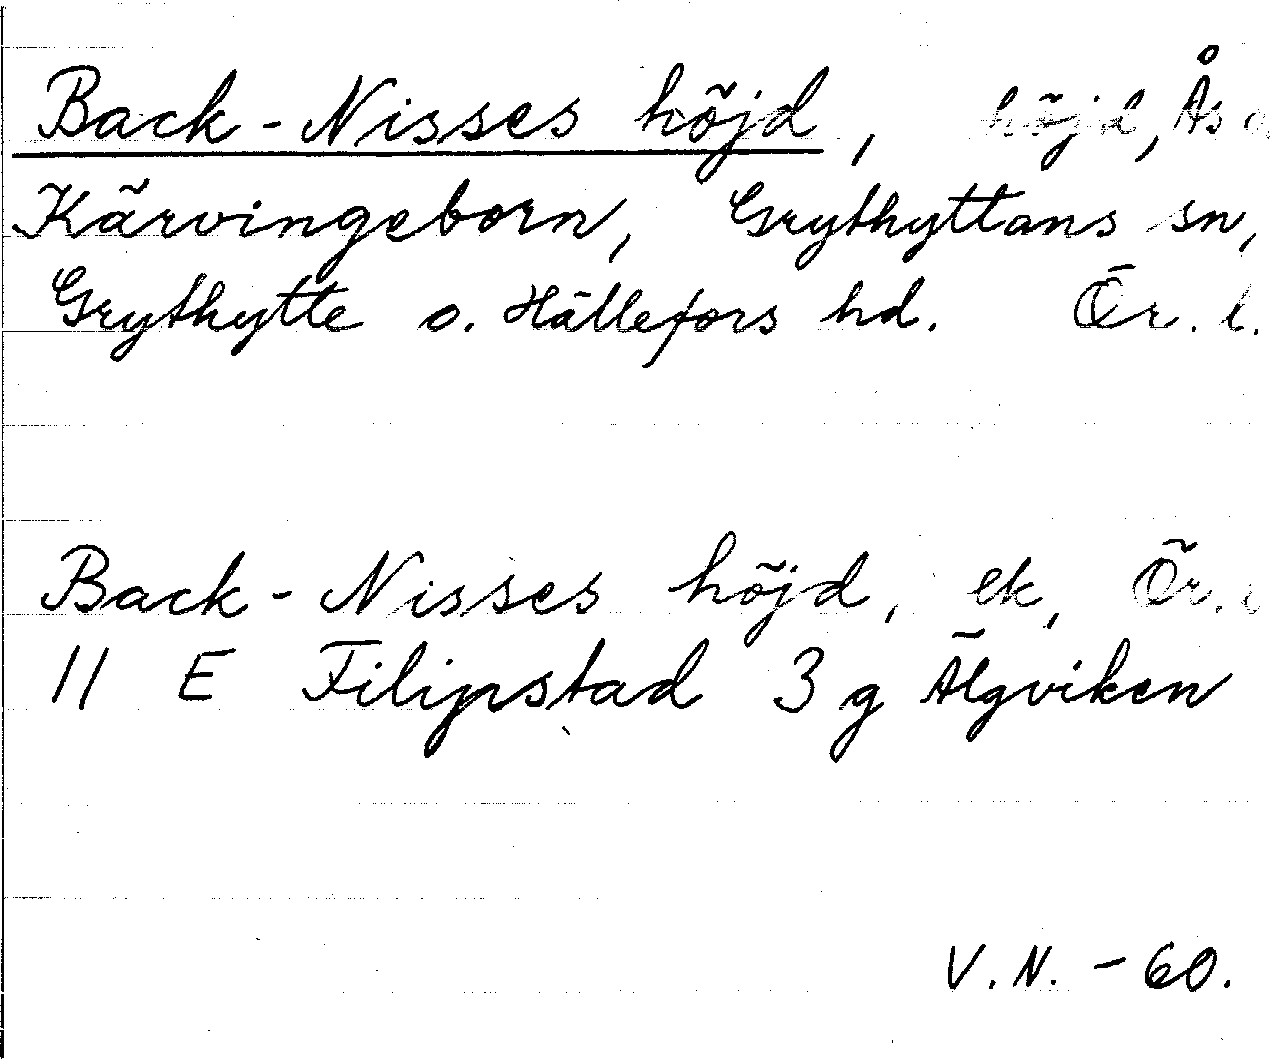 Back-Nisses höjd, höjd, Ås o.
Kärvingeborn, Grythyttans sn,
Grythytte o. Hällefors hd. Ör. l.
Back-Nisses höjd, ek, Ör. l
11 E Filipstad 3 g Älgviken
V.N. - 60.